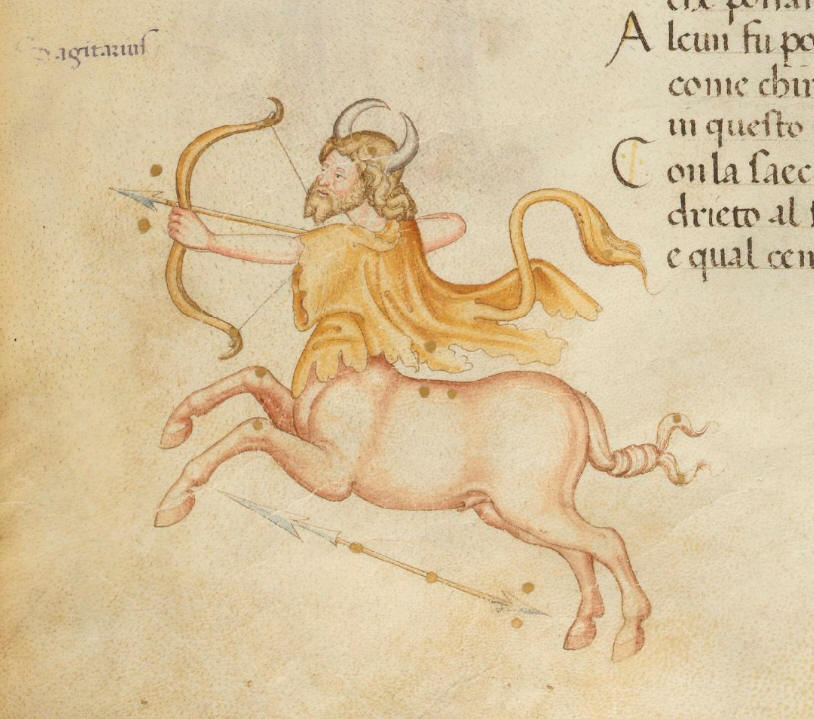 Sagitariuſ
che poſſa
Alcun fu po
come chir
in queſto
Con la ſaec
drieto al
e qual cen